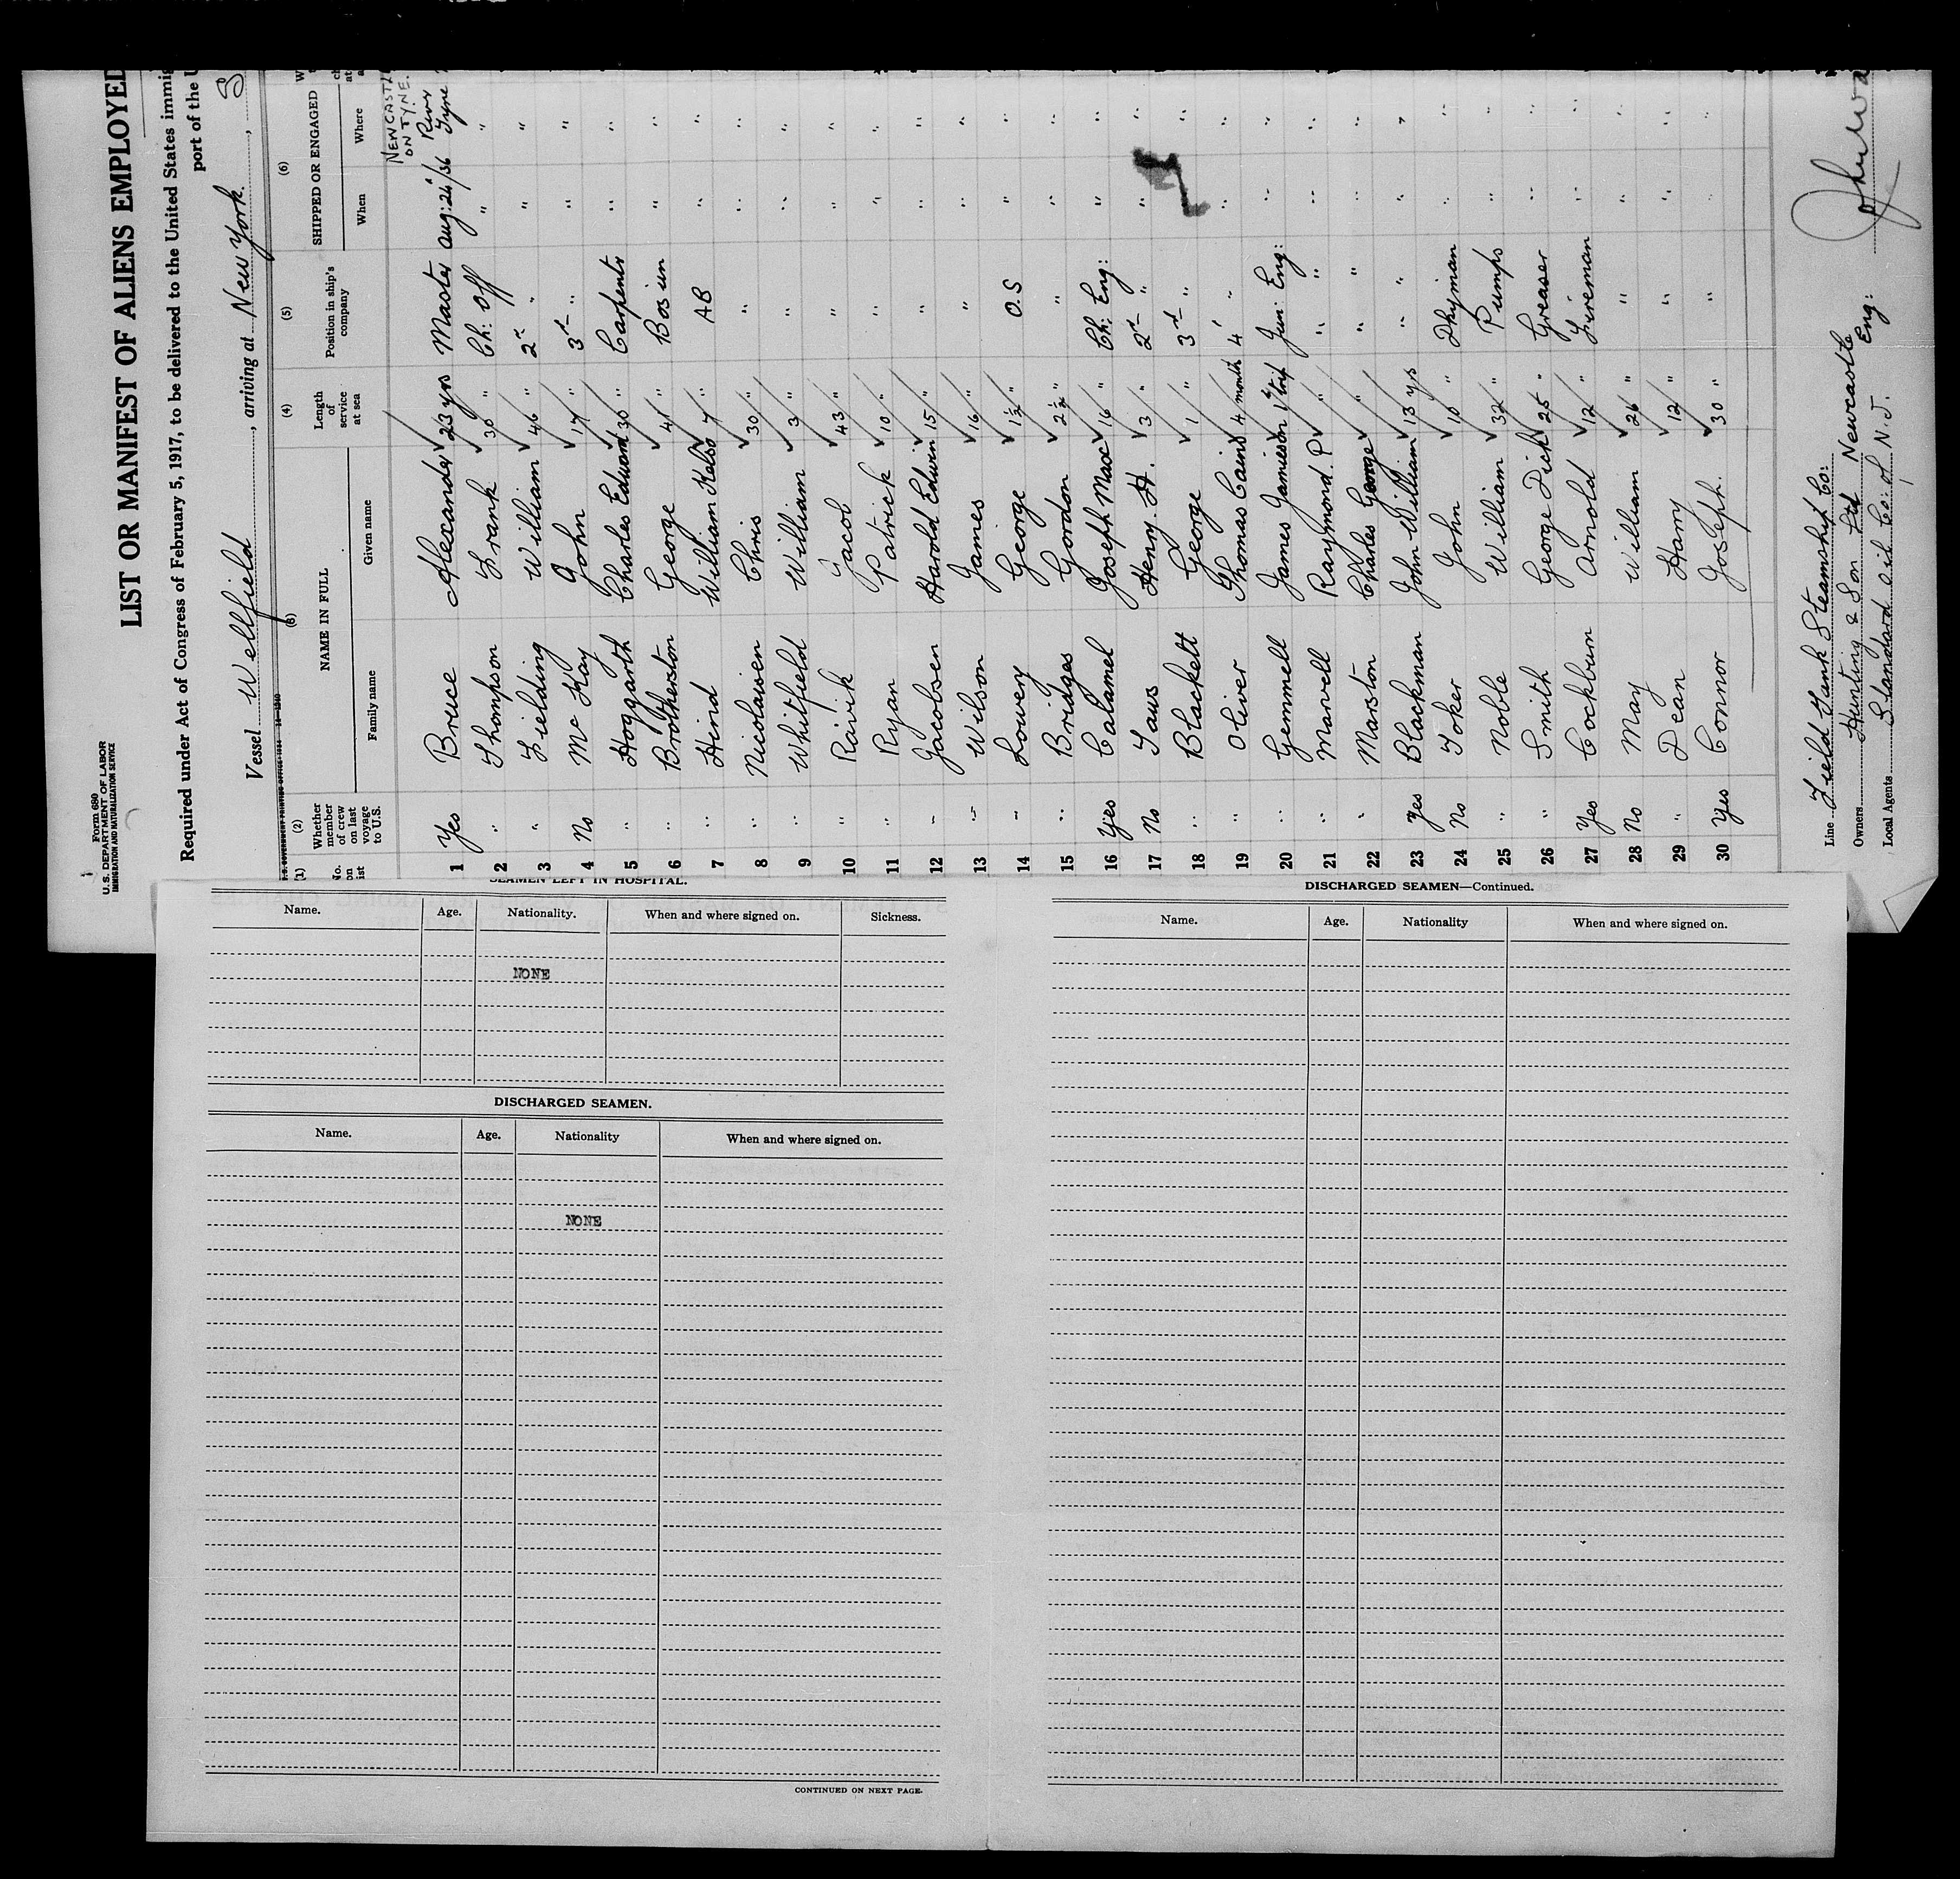 Form 680
U. S. DEPARTMENT OF LABOR
IMMIGRATION AND NATURALIZATION SERVICE
LIST OR MANIFEST OF ALIENS EMPLOYED
Required under Act of Congress of February 5, 1917, to be delivered to the United States immig
port of the U
Vessel Wellfield, arriving at New York.,
(1) (2) (3) (4) (5) (6)
No. on list Whether member of crew on last voyage to U.S. NAME IN FULL Length of service at sea Position in ship's company SHIPPED OR ENGAGED
Family name Given name When Where
NEWCASTLE ON TYNE.
1 Yes Bruce Alexander 23 yrs Master Aug: 24/36 River Tyne
2 " Thompson Frank 30 " Ch: Off " "
3 " Fielding William 46 " 2nd " " "
4 No McKay John 17 " 3rd " " "
5 " Hoggarth Charles Edward 30 " Carpenter " "
6 " Brotherston George 41 " Bosun " "
7 " Hind William Kelso 7 " AB " "
8 " Nicolaisen Chris 30 " " " "
9 " Whitfield William 3 " " " "
10 " Ravik Jacob 43 " " " "
11 " Ryan Patrick 10 " " " "
12 " Jacobsen Harold Edwin 15 " " " "
13 " Wilson James 16 " " " "
14 " Lowery George 1½ " O.S " "
15 " Bridges Gordon 2½ " " " "
16 Yes Calamel Joseph Marc 16 " Ch: Eng: " "
17 No Taws Henry. H. 3 " 2nd " " "
18 " Blackett George 1 " 3rd " " "
19 " Oliver Thomas Cairns 4 months 4 " " "
20 " Gemmell James Jamieson 1st trip Jun: Eng: " "
21 " Marvell Raymond. P " " " "
22 " Marston Charles George " " " "
23 Yes Blackman John William 13 yrs " " "
24 No Toker John 10 " Dkyman " "
25 " Noble William 32 " Pumps " "
26 " Smith George Dick 25 " Greaser " "
27 Yes Cockburn Arnold 12 " Fireman " "
28 No May William 26 " " " "
29 " Dean Harry 12 " " " "
30 Yes Connor Joseph. 30 " " " "
Line Field Tank Steamship Co:
Owners Hunting & Son Ltd Newcastle Eng:
Local Agents Standard Oil Co: of N.J.
John
SEAMEN LEFT IN HOSPITAL.
Name. Age. Nationality. When and where signed on. Sickness.
NONE
DISCHARGED SEAMEN.
Name. Age. Nationality When and where signed on.
NONE
CONTINUED ON NEXT PAGE.
DISCHARGED SEAMEN—Continued.
Name. Age. Nationality When and where signed on.